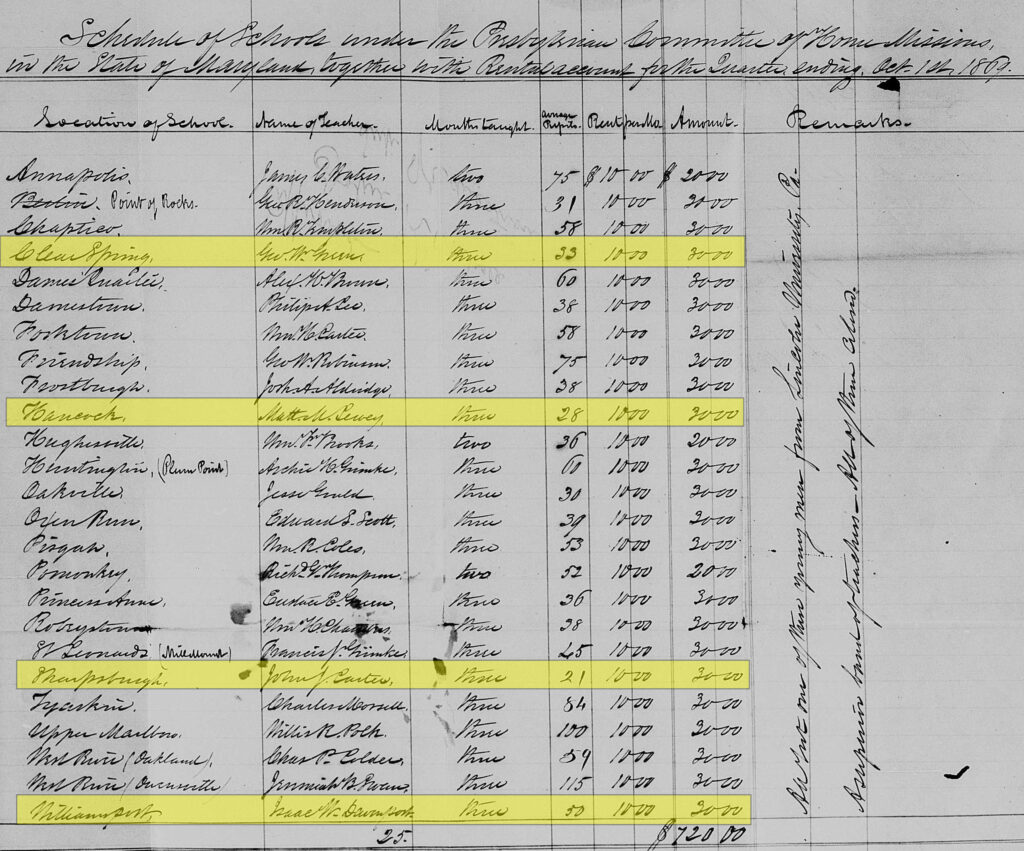 Schedule of Schools under the Presbyterian Committee of Home Missions,
in the State of Maryland, together with Rental account for the Quarter ending, Oct. 1st, 1869.
Location of School. Name of Teacher. Months taught. average Pupils. Rent per Mo Amount. Remarks.
Annapolis. James C. Waters two 75 $10.00 $2000
Point of Rocks. Geo. R. Henderson, three 31 1000 3000
Chaptico Wm R. Franklin, three 58 1000 3000
Clear Spring, Geo. W. Green, three 33 1000 3000
Dames Quarter. three 60 1000 3000
Darnestown. Philip A. Lee, three 38 1000 3000
Forktown. Wm. H. Carter, three 58 1000 3000
Friendship. Geo W. Robinson, three 75 1000 3000
Frostburgh. Josh. A. Aldridge, three 38 1000 3000
Hancock, Matt. M. Lewey, three 28 1000 3000
Hughesville, Wm. Brooks, two 36 1000 2000
Huntingtin, (Plum Point) Archie H. Grimke, three 60 1000 3000
Oakville, Jesse three 30 1000 3000
Run, Edward S. Scott, three 39 1000 3000
Pisgah, Wm. R. Coles, three 53 1000 3000
Pomonkey, Richd. W. Thompson two 52 1000 2000
Princess Anne, E. Green, three 36 1000 3000
Robeystown Wm. H. Chambers three 38 1000 3000
St Leonards, Francis J. Grimke, three 45 1000 3000
Sharpsburgh, John J. Carter, three 21 1000 3000
Tyaskin. Charles three 84 1000 3000
Upper Marlboro, Willis R. Polk, three 100 1000 3000
West River (Oakland), Chas P. Colder, three 59 1000 3000
West River (Owensville) Jeremiah B. Swan, three 115 1000 3000
Williamsport, Isaac W. Davenport three 50 1000 3000
25. $720.00
All but one of them young men from Lincoln University, Pa.
A superior band of teachers— All of them